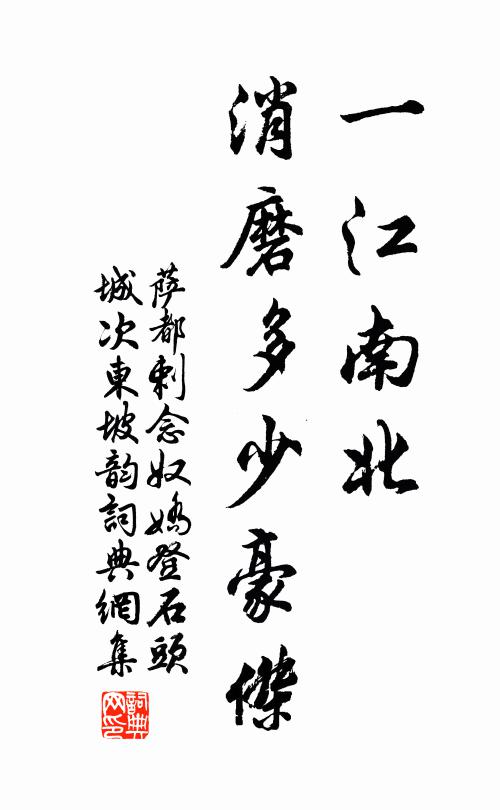 一江南北
消磨多少豪傑
薩都剌念奴嬌登石頭
城次東坡韵詞典網集
詞典网印